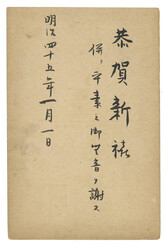 恭賀新禧
併テ平素之御無音ヲ謝ス
明治四十五年一月一日